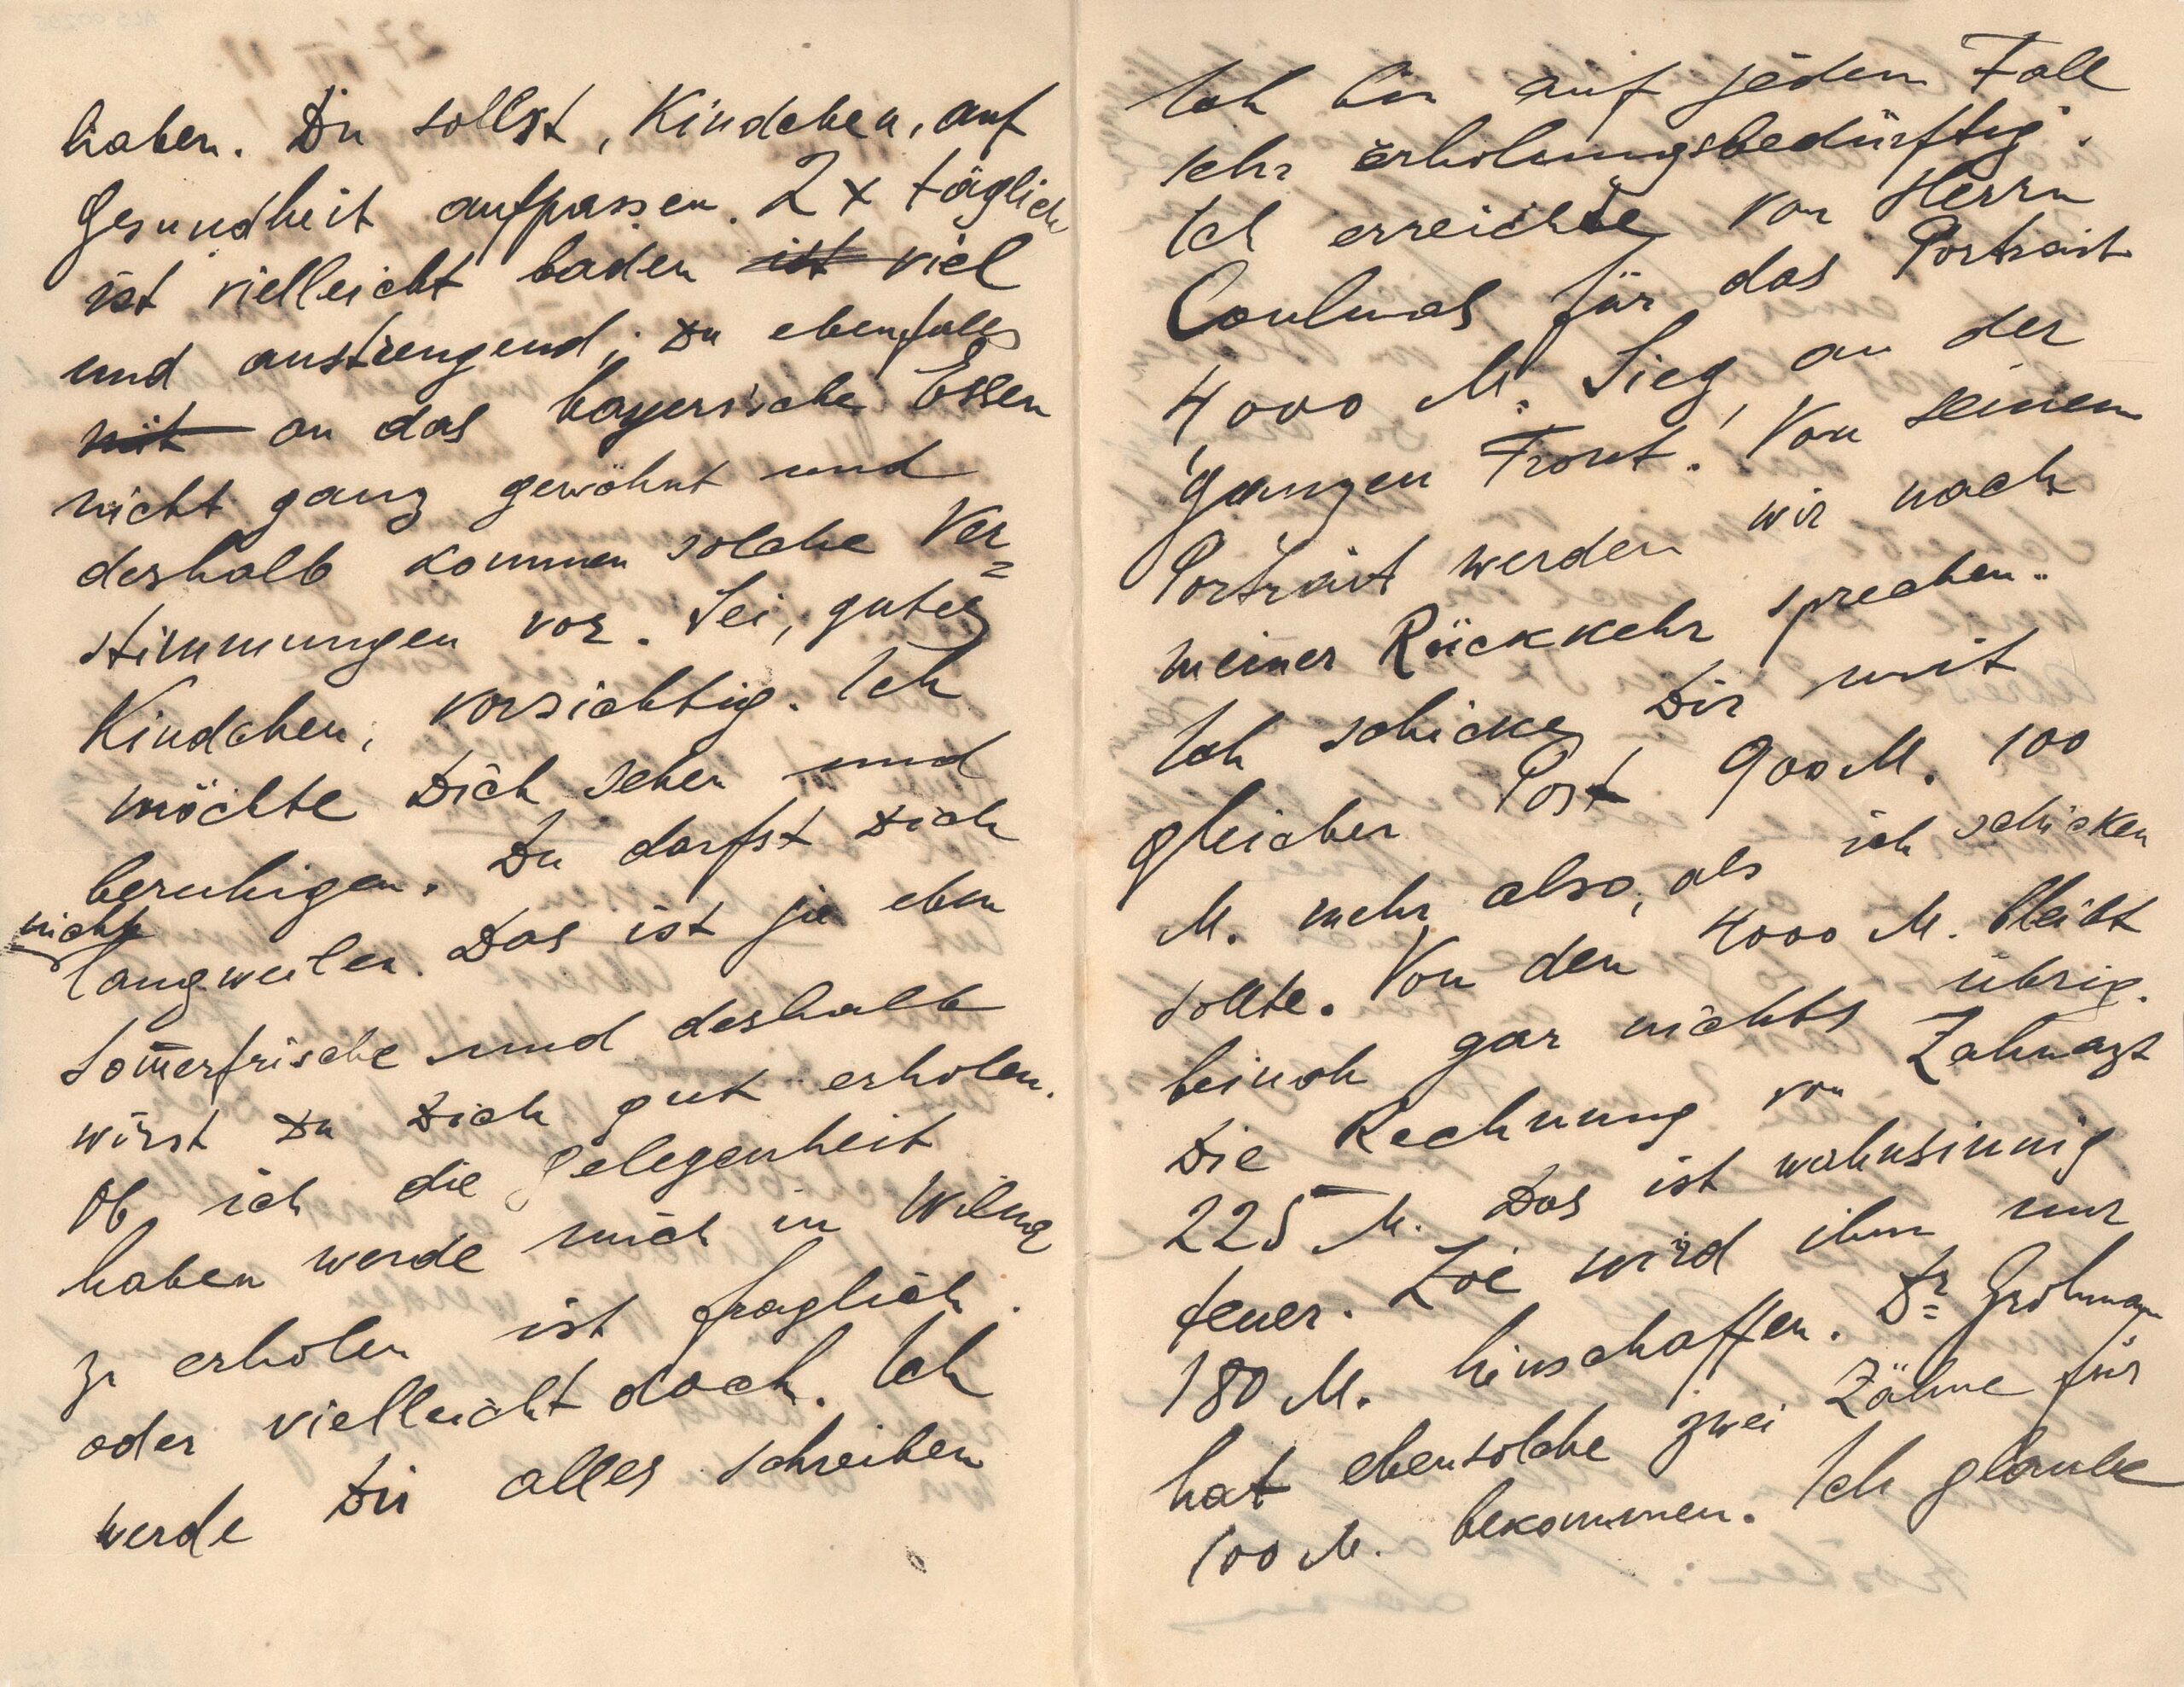 haben. Du sollst, Kindchen, auf
Gesundheit aufpassen. 2 x täglich
ist vielleicht baden ist viel
und anstrengend; Du ebenfalls
mit an das bayerische Essen
nicht ganz gewöhnt und
deshalb kommen solche Ver=
stimmungen vor. Sei, gutes
Kindchen, vorsichtig. Ich
möchte Dich sehen und
beruhigen. Du darfst Dich
nicht
langweilen. Das ist ja eben
Som̅erfrische und deshalb
wirst Du Dich gut erholen.
Ob ich die Gelegenheit
haben werde mich in Wilna
zu erholen ist fraglich.
oder vielleicht doch. Ich
werde Dir alles schreiben
Ich bin auf jeden Fall
sehr erholungsbedürftig.
Ich erreichte von Herrn
für das Porträit
4000 M. Sieg, an der
ganzen Front! Von seinem
Porträit werden wir nach
meiner Rückkehr sprechen.
Ich schicke Dir mit
gleicher Post 900 M. 100
M. mehr also, als ich schicken
sollte. Von den 4000 M. bleibt
beinah gar nichts übrig.
Die Rechnung von Zahnazt
225 M. Das ist wahnsinnig
teuer. Zoe wird ihm nur
180 M. hinschaffen. Dr Grohmann
hat ebensolche zwei Zähne für
100 M. bekommen. Ich glaube